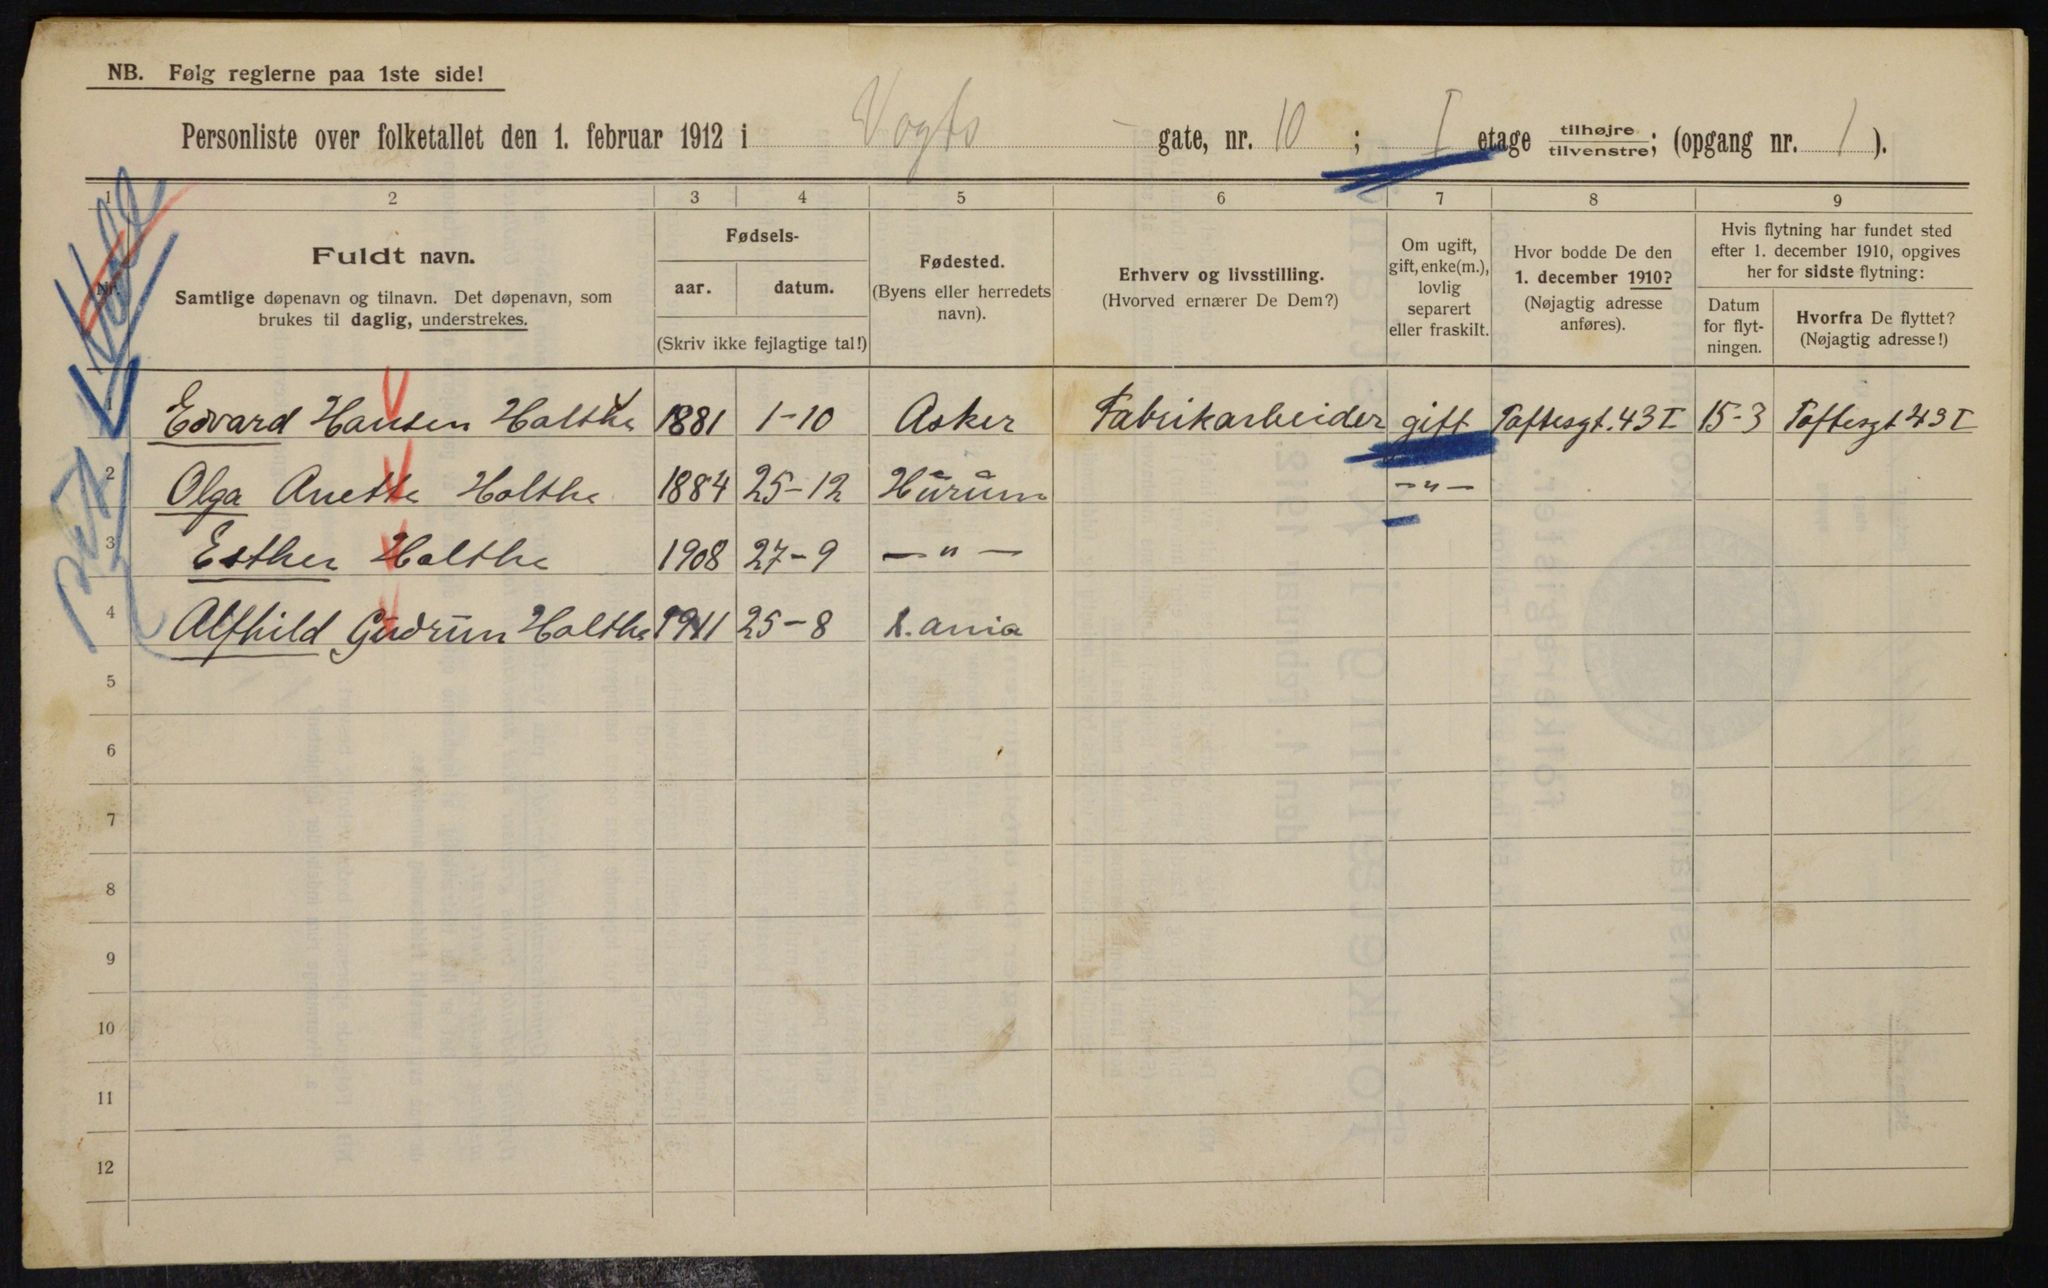 NB. Følg reglerne paa 1ste side!
Personliste over folketallet den 1. februar 1912 i Vogts gate, nr. 10 ; I etage tilhøjre tilvenstre; (opgang nr. 1 ).
1 2 3 4 5 6 7 8 9
Nr.
Fuldt navn.
Samtlige døpenavn og tilnavn. Det døpenavn, som
brukes til daglig, understrekes.
Fødsels-
aar. datum.
(Skriv ikke fejlagtige tal!)
Fødested.
(Byens eller herredets
navn).
Erhverv og livsstilling.
(Hvorved ernærer De Dem?)
Om ugift,
gift, enke(m.),
lovlig
separert
eller fraskilt.
Hvor bodde De den
1. december 1910?
(Nøjagtig adresse
anføres).
Hvis flytning har fundet sted
efter 1. december 1910, opgives
her for sidste flytning:
Datum
for flyt-
ningen.
Hvorfra De flyttet?
(Nøjagtig adresse!)
1 Edvard Hansen Holthe 1881 1-10 Asker Fabrikarbeider gift Toftesgt. 43 I 15-3 Toftesgt 43 I
2 Olga Anette Holthe 1884 25-12 Hurum -"-
3 Esther Holthe 1908 27-9 -"-
4 Alfhild Gudrun Holthe 1911 25-8 K.ania
5
6
7
8
9
10
11
12